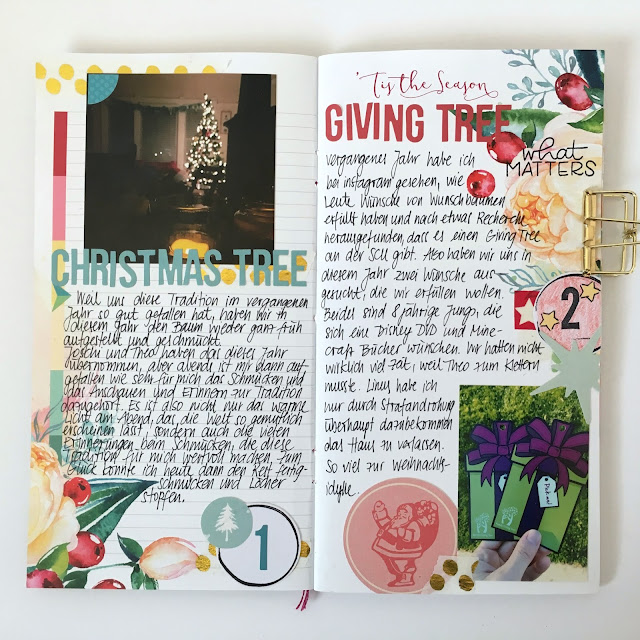 CHRISTMAS TREE
Weil uns diese Tradition im vergangenen
Jahr so gut gefallen hat, haben wir in
diesem Jahr den Baum wieder ganz früh
aufgestellt und geschmückt.
Joschi und Theo haben das dieses Jahr
übernommen, aber abend ist mir dann auf-
gefallen wie sehr für mich das Schmücken und
das Anschauen und Erinnern zur Tradition
dazugehört. Es ist also nicht nur das warme
Licht am Abend, das die Welt so gemütlich
erscheinen lässt, sondern auch die vielen
Erinnerungen beim Schmücken, die diese
Tradition für mich wertvoll machen. Zum
Glück konnte ich heute dann den Rest fertig-
schmücken und Löcher
stopfen.
1
'Tis the Season
GIVING TREE
what
MATTERS
Vergangenes Jahr habe ich
bei instagram gesehen, wie
Leute Wünsche von Wunschbäumen
erfüllt haben und nach etwas Recherche
herausgefunden, dass es einen Giving Tree
an der SCU gibt. Also haben wir uns in
diesem Jahr zwei Wünsche aus-
gesucht, die wir erfüllen wollen.
Beides sind 8jährige Jungs, die
sich ein Disney DVD und Mine-
craft Bücher wünschen. Wir hatten nicht
wirklich viel Zeit, weil Theo zum Klettern
musste. Linus habe ich
nur durch Strafandrohung
überhaupt dazu bekommen
das Haus zu verlassen.
So viel zur Weihnachts-
idylle.
2